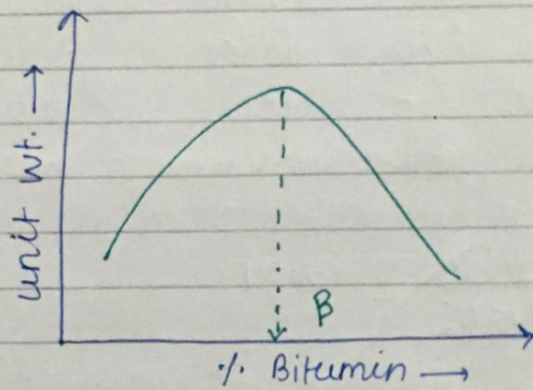 unit wt. →
β
·/. Bitumin →